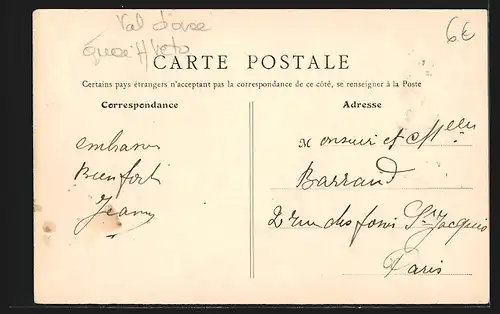 Val d'oise
6€
CARTE POSTALE
Certains pays étrangers n'acceptant pas la correspondance de ce côté, se renseigner à la Poste
Correspondance
Adresse
Monsieur et Melle
Barraud
2 rue des fossés St Jacques
Paris
Bien fort
Jeanne